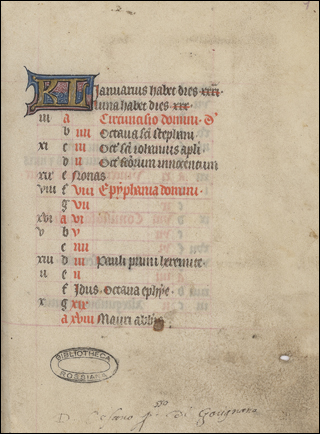 KL Januarius habet dies xxxi.
luna habet dies xxx.
iii a Circuncisio domini.
b iiii Octaua sci stephani
xi c iii Oct' sci iohannis apli
d ii Oct' scorum innocentum
xix e Nonas
viii f viii Epyphania domini.
g vii
xvi a vi
v b v
c iiii
xiii d iii Pauli primi heremite.
ii e ii
f Idus. Octaua ephye.
x g xix
a xviii Mauri abbis.
BIBLIOTHECA
ROSSIANA